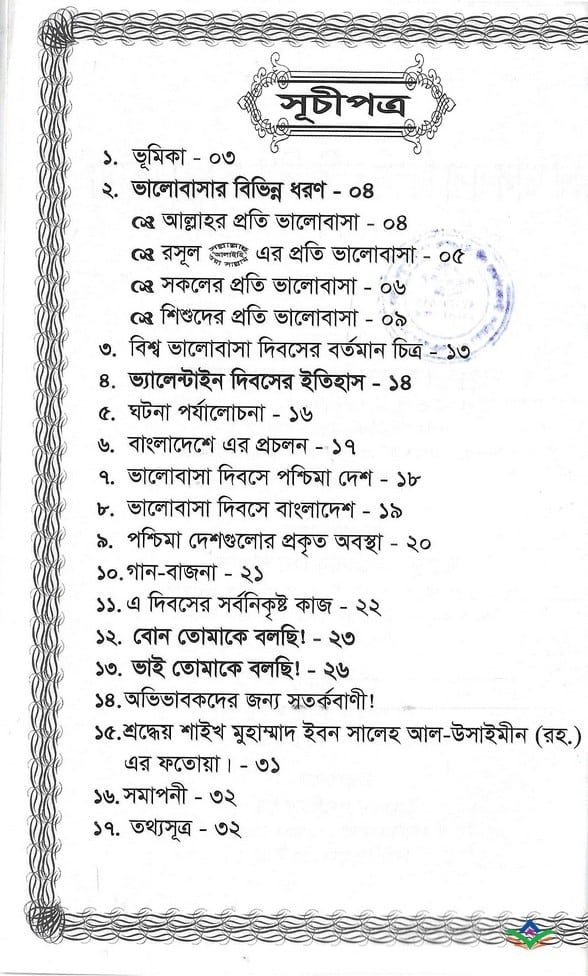 সূচীপত্র
১. ভূমিকা - ০৩
২. ভালোবাসার বিভিন্ন ধরণ - ০৪
আল্লাহর প্রতি ভালোবাসা - ০৪
রসূল সাল্লাল্লাহু আলাইহি ওয়া সাল্লাম এর প্রতি ভালোবাসা - ০৫
সকলের প্রতি ভালোবাসা - ০৬
শিশুদের প্রতি ভালোবাসা - ০৯
৩. বিশ্ব ভালোবাসা দিবসের বর্তমান চিত্র - ১৩
৪. ভ্যালেন্টাইন দিবসের ইতিহাস - ১৪
৫. ঘটনা পর্যালোচনা - ১৬
৬. বাংলাদেশে এর প্রচলন - ১৭
৭. ভালোবাসা দিবসে পশ্চিমা দেশ - ১৮
৮. ভালোবাসা দিবসে বাংলাদেশ - ১৯
৯. পশ্চিমা দেশগুলোর প্রকৃত অবস্থা - ২০
১০. গান-বাজনা - ২১
১১. এ দিবসের সর্বনিকৃষ্ট কাজ - ২২
১২. বোন তোমাকে বলছি! - ২৩
১৩. ভাই তোমাকে বলছি! - ২৬
১৪. অভিভাবকদের জন্য সতর্কবাণী!
১৫. শ্রদ্ধেয় শাইখ মুহাম্মাদ ইবন সালেহ আল-উসাইমীন (রহ.)
এর ফতোয়া। - ৩১
১৬. সমাপনী - ৩২
১৭. তথ্যসূত্র - ৩২